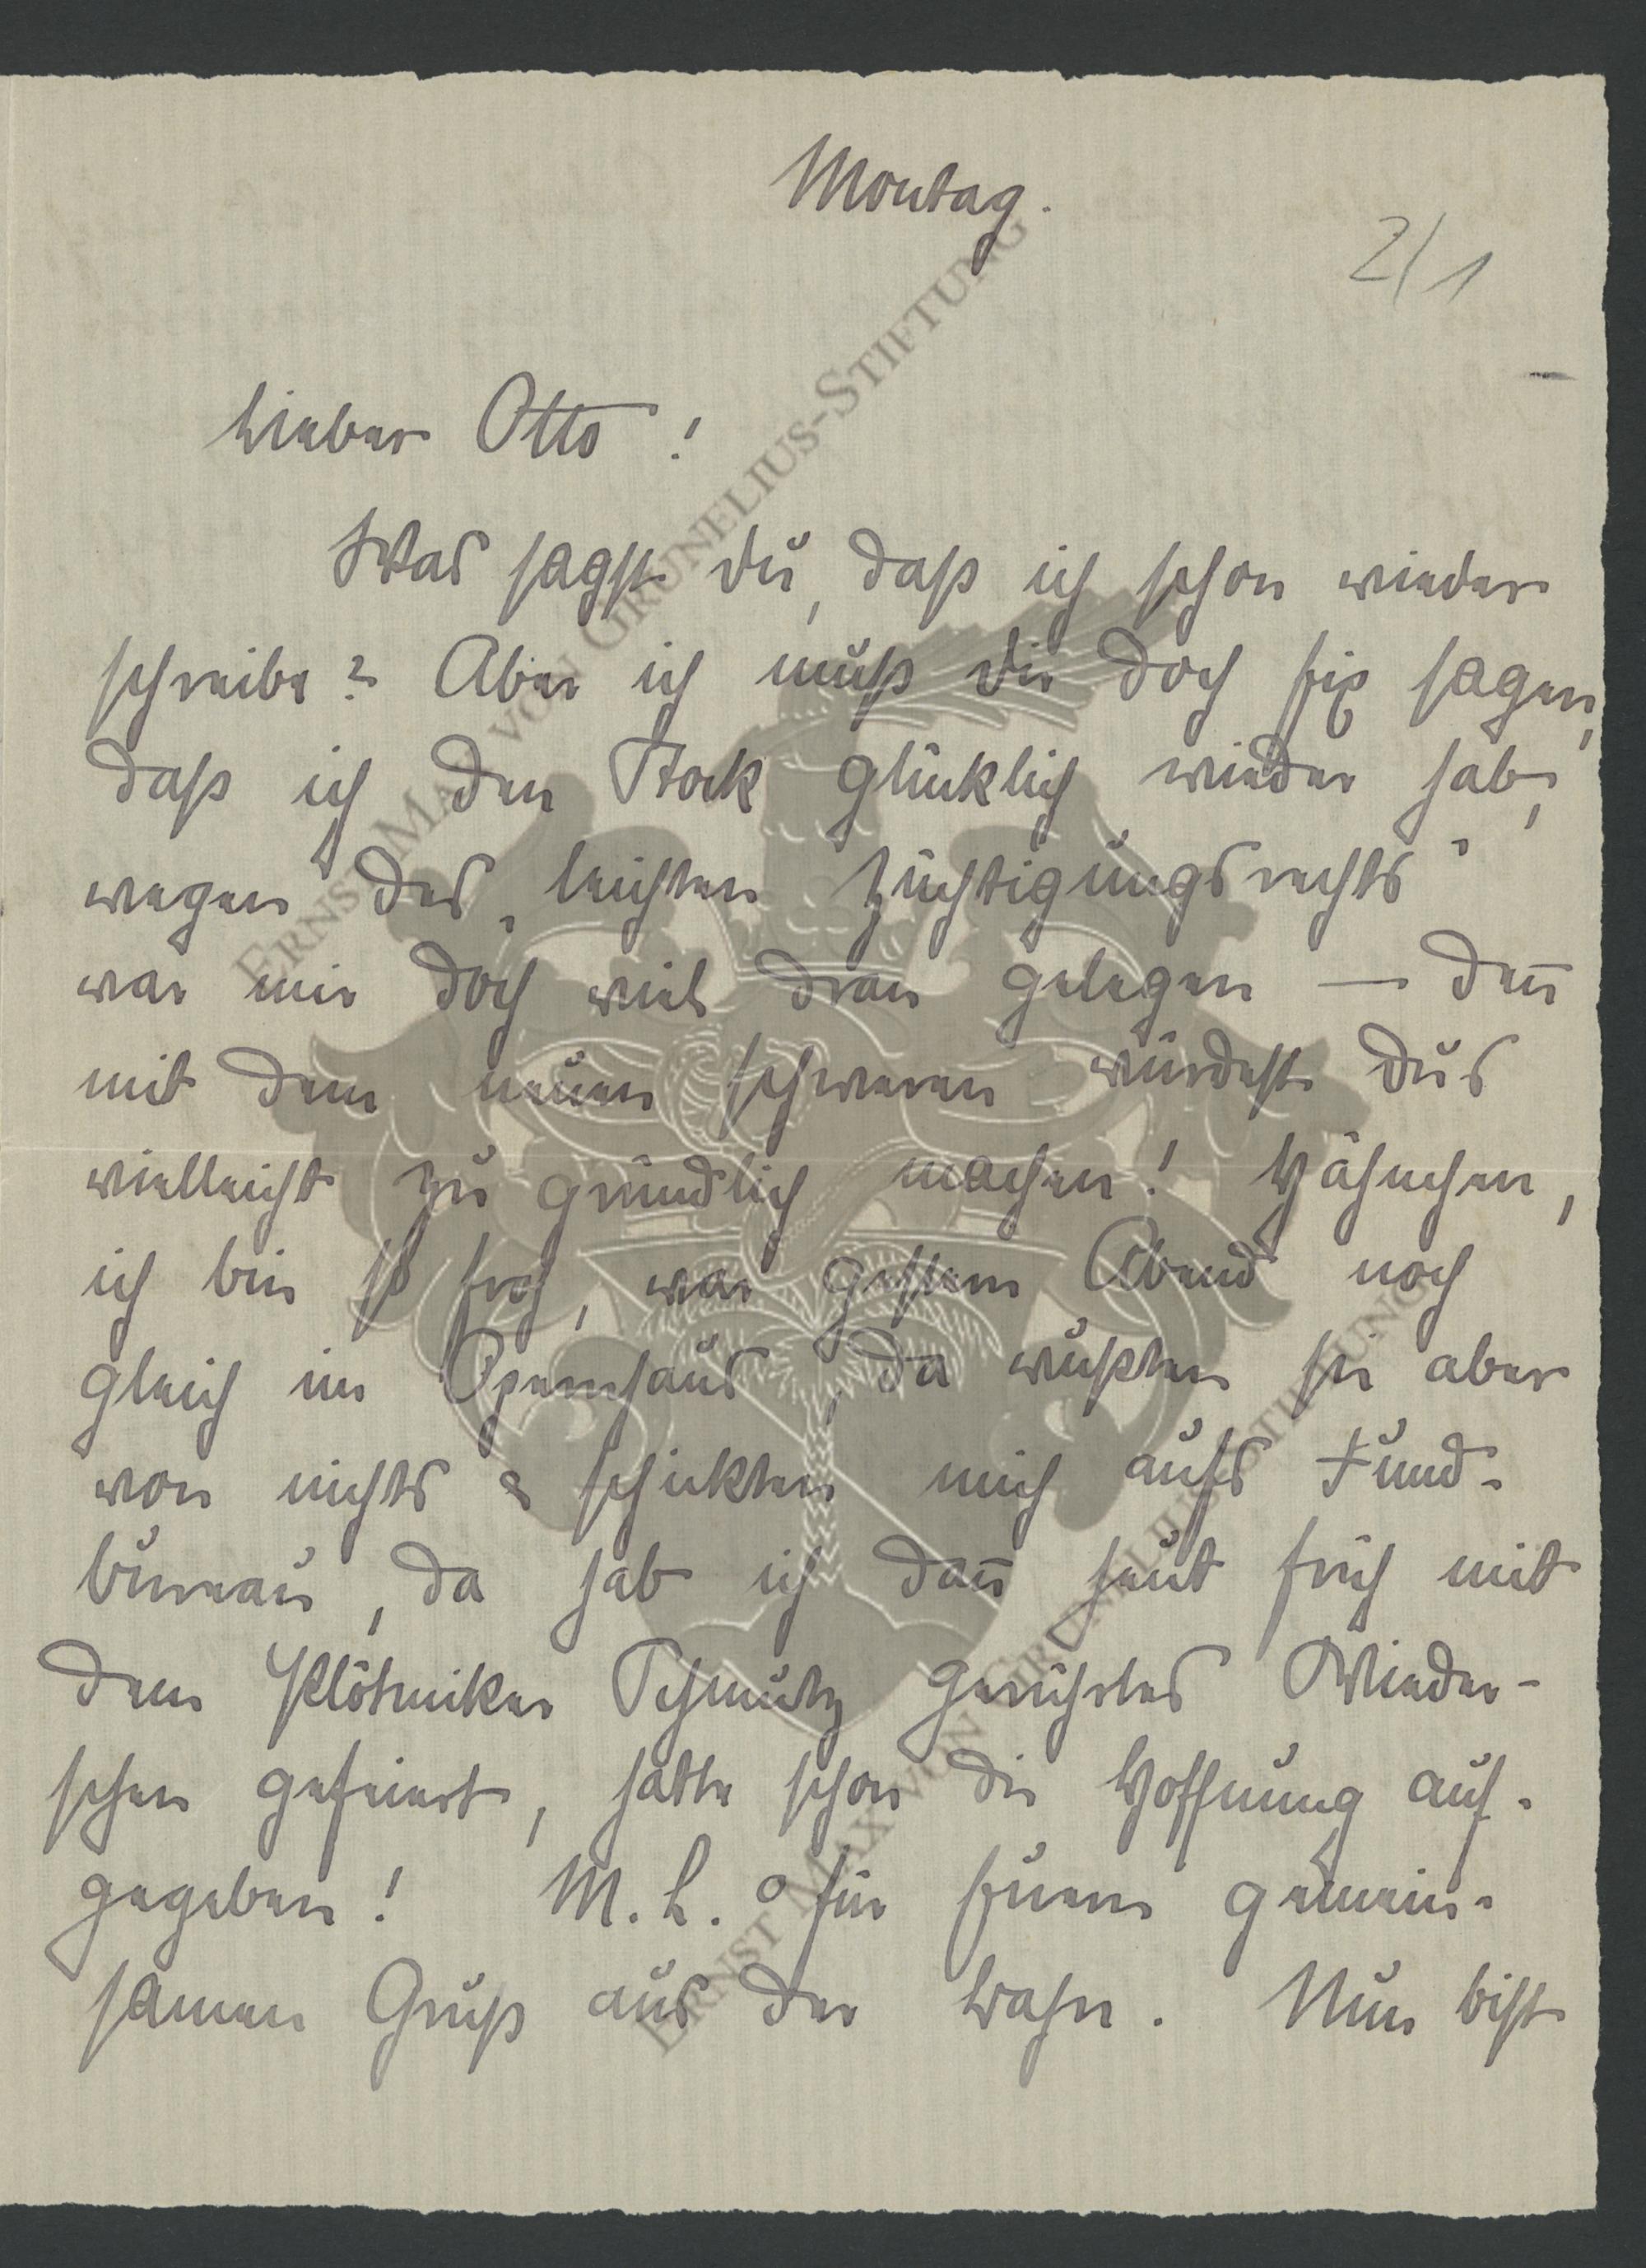 Montag.
2/1
Lieber Otto!
Was sagst Du, daß ich schon wieder
schreibe? Aber ich muß Dir doch fix sagen,
daß ich den Stock glücklich wieder hab,
wegen des „leichten Züchtigungsrechts“
war mir doch viel dran gelegen — den̄
mit dem neuen schweren würdest Du's
vielleicht zu gründlich machen! Hähnchen,
ich bin so froh, war gestern Abend noch
gleich im Opernhaus, da wußten sie aber
von nichts & schickten mich aufs Fund-
bureau, da hab ich dan̄ heut früh mit
dem Schmutz gerührtes Wieder-
sehen gefeiert, hatte schon die Hoffnung auf-
gegeben! M. L. für Euern gemein-
samen Gruß aus der Bahn. Nun bist
ERNST MAX VON GRUNELIUS-STIFTUNG
ERNST MAX VON GRUNELIUS-STIFTUNG